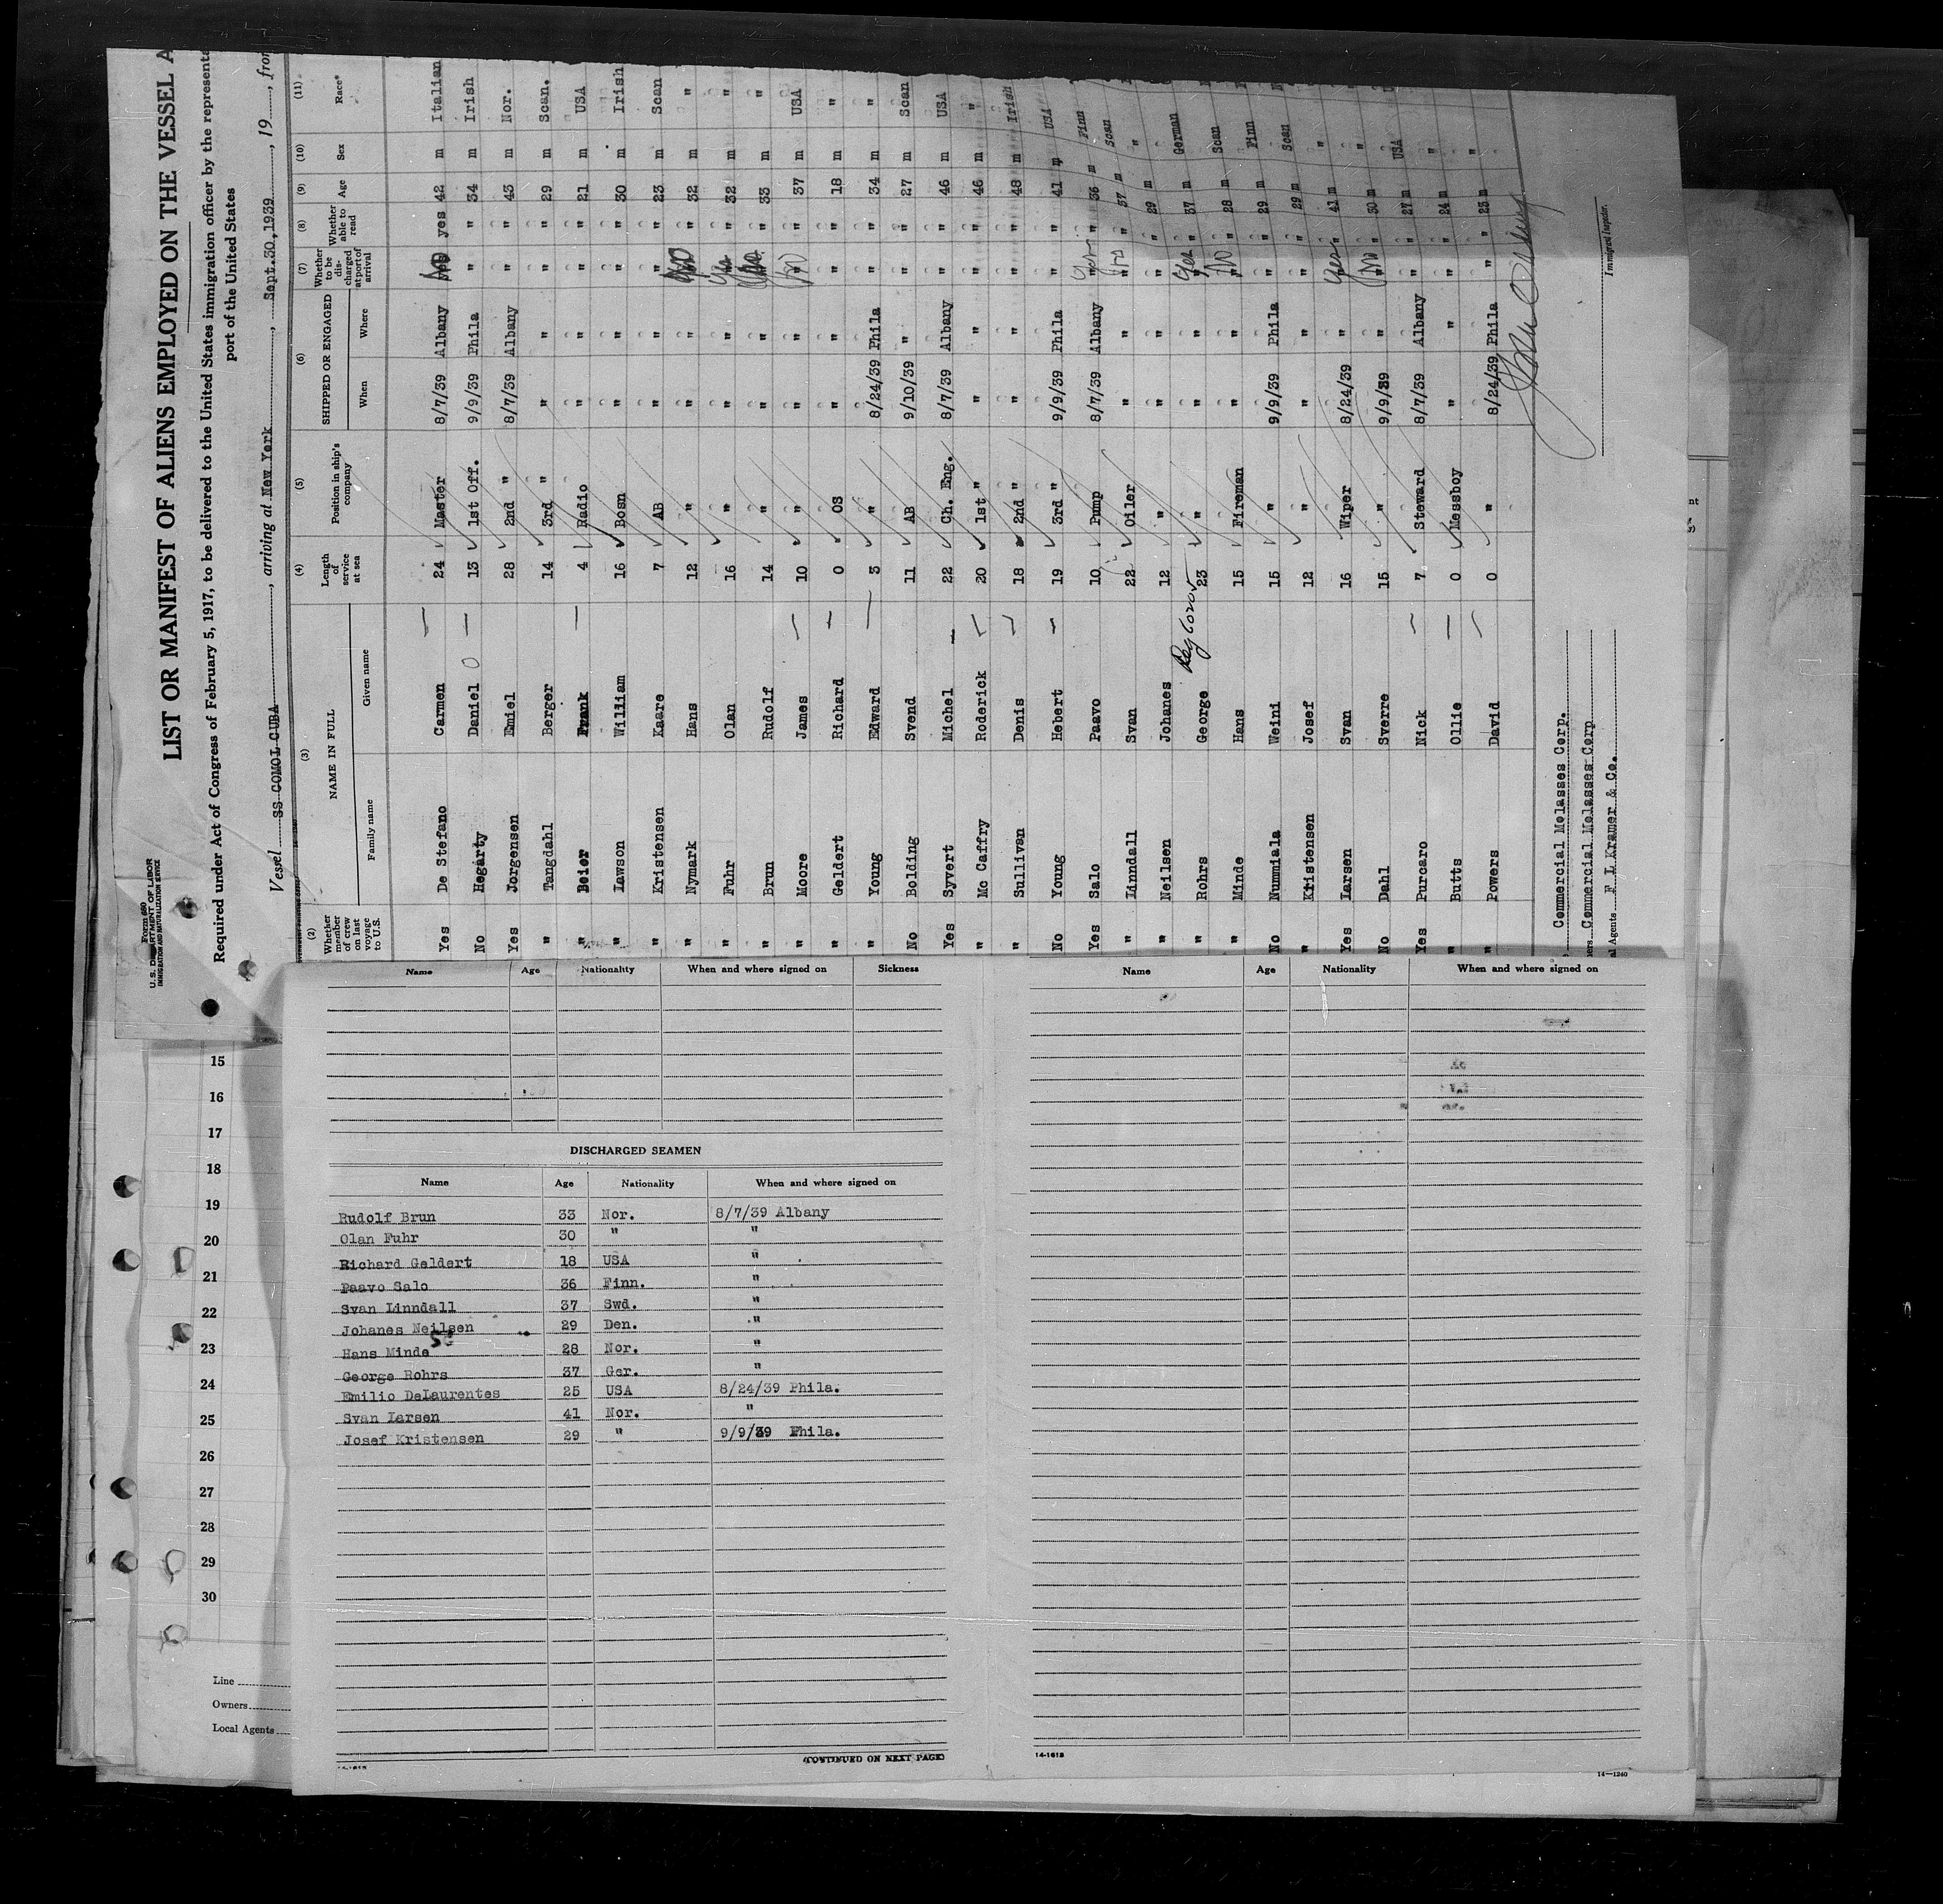 Form 680
U. S. DEPARTMENT OF LABOR
IMMIGRATION AND NATURALIZATION SERVICE
LIST OR MANIFEST OF ALIENS EMPLOYED ON THE VESSEL A
Required under Act of Congress of February 5, 1917, to be delivered to the United States immigration officer by the represent
port of the United States
Vessel SS COMOL CUBA, arriving at New York, Sept. 30, 1939, 19, from
(2) (3) (4) (5) (6) (7) (8) (9) (10) (11)
Whether member of crew on last voyage to U.S. NAME IN FULL Family name Given name Length of service at sea Position in ship's company SHIPPED OR ENGAGED When Where Whether to be discharged at port of arrival Whether able to read Age Sex Race*
Yes De Stefano Carmen 24 Master 8/7/39 Albany yes 42 m Italian
No Hegarty Daniel 13 1st Off. 9/9/39 Phila " " 34 m Irish
Yes Jorgensen Emiel 28 2nd " 8/7/39 Albany " " 43 m Nor.
" Tangdahl Berger 14 3rd " " " " " 29 m Scan.
" Beier Frank 4 Radio " " " " 21 m USA
" Lawson William 16 Bosn " " " " 30 m Irish
" Kristensen Kaare 7 AB " " " " 23 m Scan
" Nymark Hans 12 " " " No " 32 m "
" Fuhr Olan 16 " " " Yes " 32 m "
" Brun Rudolf 14 " " " " 33 m "
" Moore James 10 " " " No " 37 m USA
" Geldert Richard 0 OS " " " " 18 m "
" Young Edward 3 " 8/24/39 Phila " " 34 m "
No Bolding Svend 11 AB 9/10/39 " " " 27 m Scan
Yes Syvert Michel 22 Ch. Eng. 8/7/39 Albany " " 46 m USA
" Mc Caffry Roderick 20 1st " " " " " 46 m "
" Sullivan Denis 18 2nd " " " " " 48 m Irish
No Young Hebert 19 3rd " 9/9/39 Phila " " 41 m USA
Yes Salo Paavo 10 Pump 8/7/39 Albany Yes " 36 m Finn
" Linndall Svan 22 Oiler " " No " 37 m Scan
" Neilsen Johanes 12 " " " " " 29 m "
" Rohrs George 23 " " " Yes " 37 m German
" Minde Hans 15 Fireman " " No " 28 m Scan
No Numniala Weini 15 " 9/9/39 Phila " " 29 m Finn
" Kristensen Josef 12 " " " " " 29 m Scan
Yes Larsen Svan 16 Wiper 8/24/39 " Yes " 41 m "
No Dahl Sverre 15 " 9/9/39 " No " 30 m "
Yes Purcaro Nick 7 Steward 8/7/39 Albany " " 27 m USA
" Butts Ollie 0 Messboy " " " 24 m "
" Powers David 0 " 8/24/39 Phila " " 23 m "
Commercial Molasses Corp.
Commercial Molasses Corp
Agents F L Kramer & Co.
Immigrant Inspector.
Name Age Nationality When and where signed on Sickness
DISCHARGED SEAMEN
Name Age Nationality When and where signed on
Rudolf Brun 33 Nor. 8/7/39 Albany
Olan Fuhr 30 " "
Richard Geldert 18 USA "
Paavo Salo 36 Finn. "
Svan Linndall 37 Swd. "
Johanes Neilsen 29 Den. "
Hans Minde 28 Nor. "
George Rohrs 37 Ger. "
Emilio DeLaurentes 25 USA 8/24/39 Phila.
Svan Larsen 41 Nor. "
Josef Kristensen 29 " 9/9/39 Phila.
(CONTINUED ON NEXT PAGE)
Name Age Nationality When and where signed on
14-1618
14—1240
15
16
17
18
19
20
21
22
23
24
25
26
27
28
29
30
Line
Owners
Local Agents